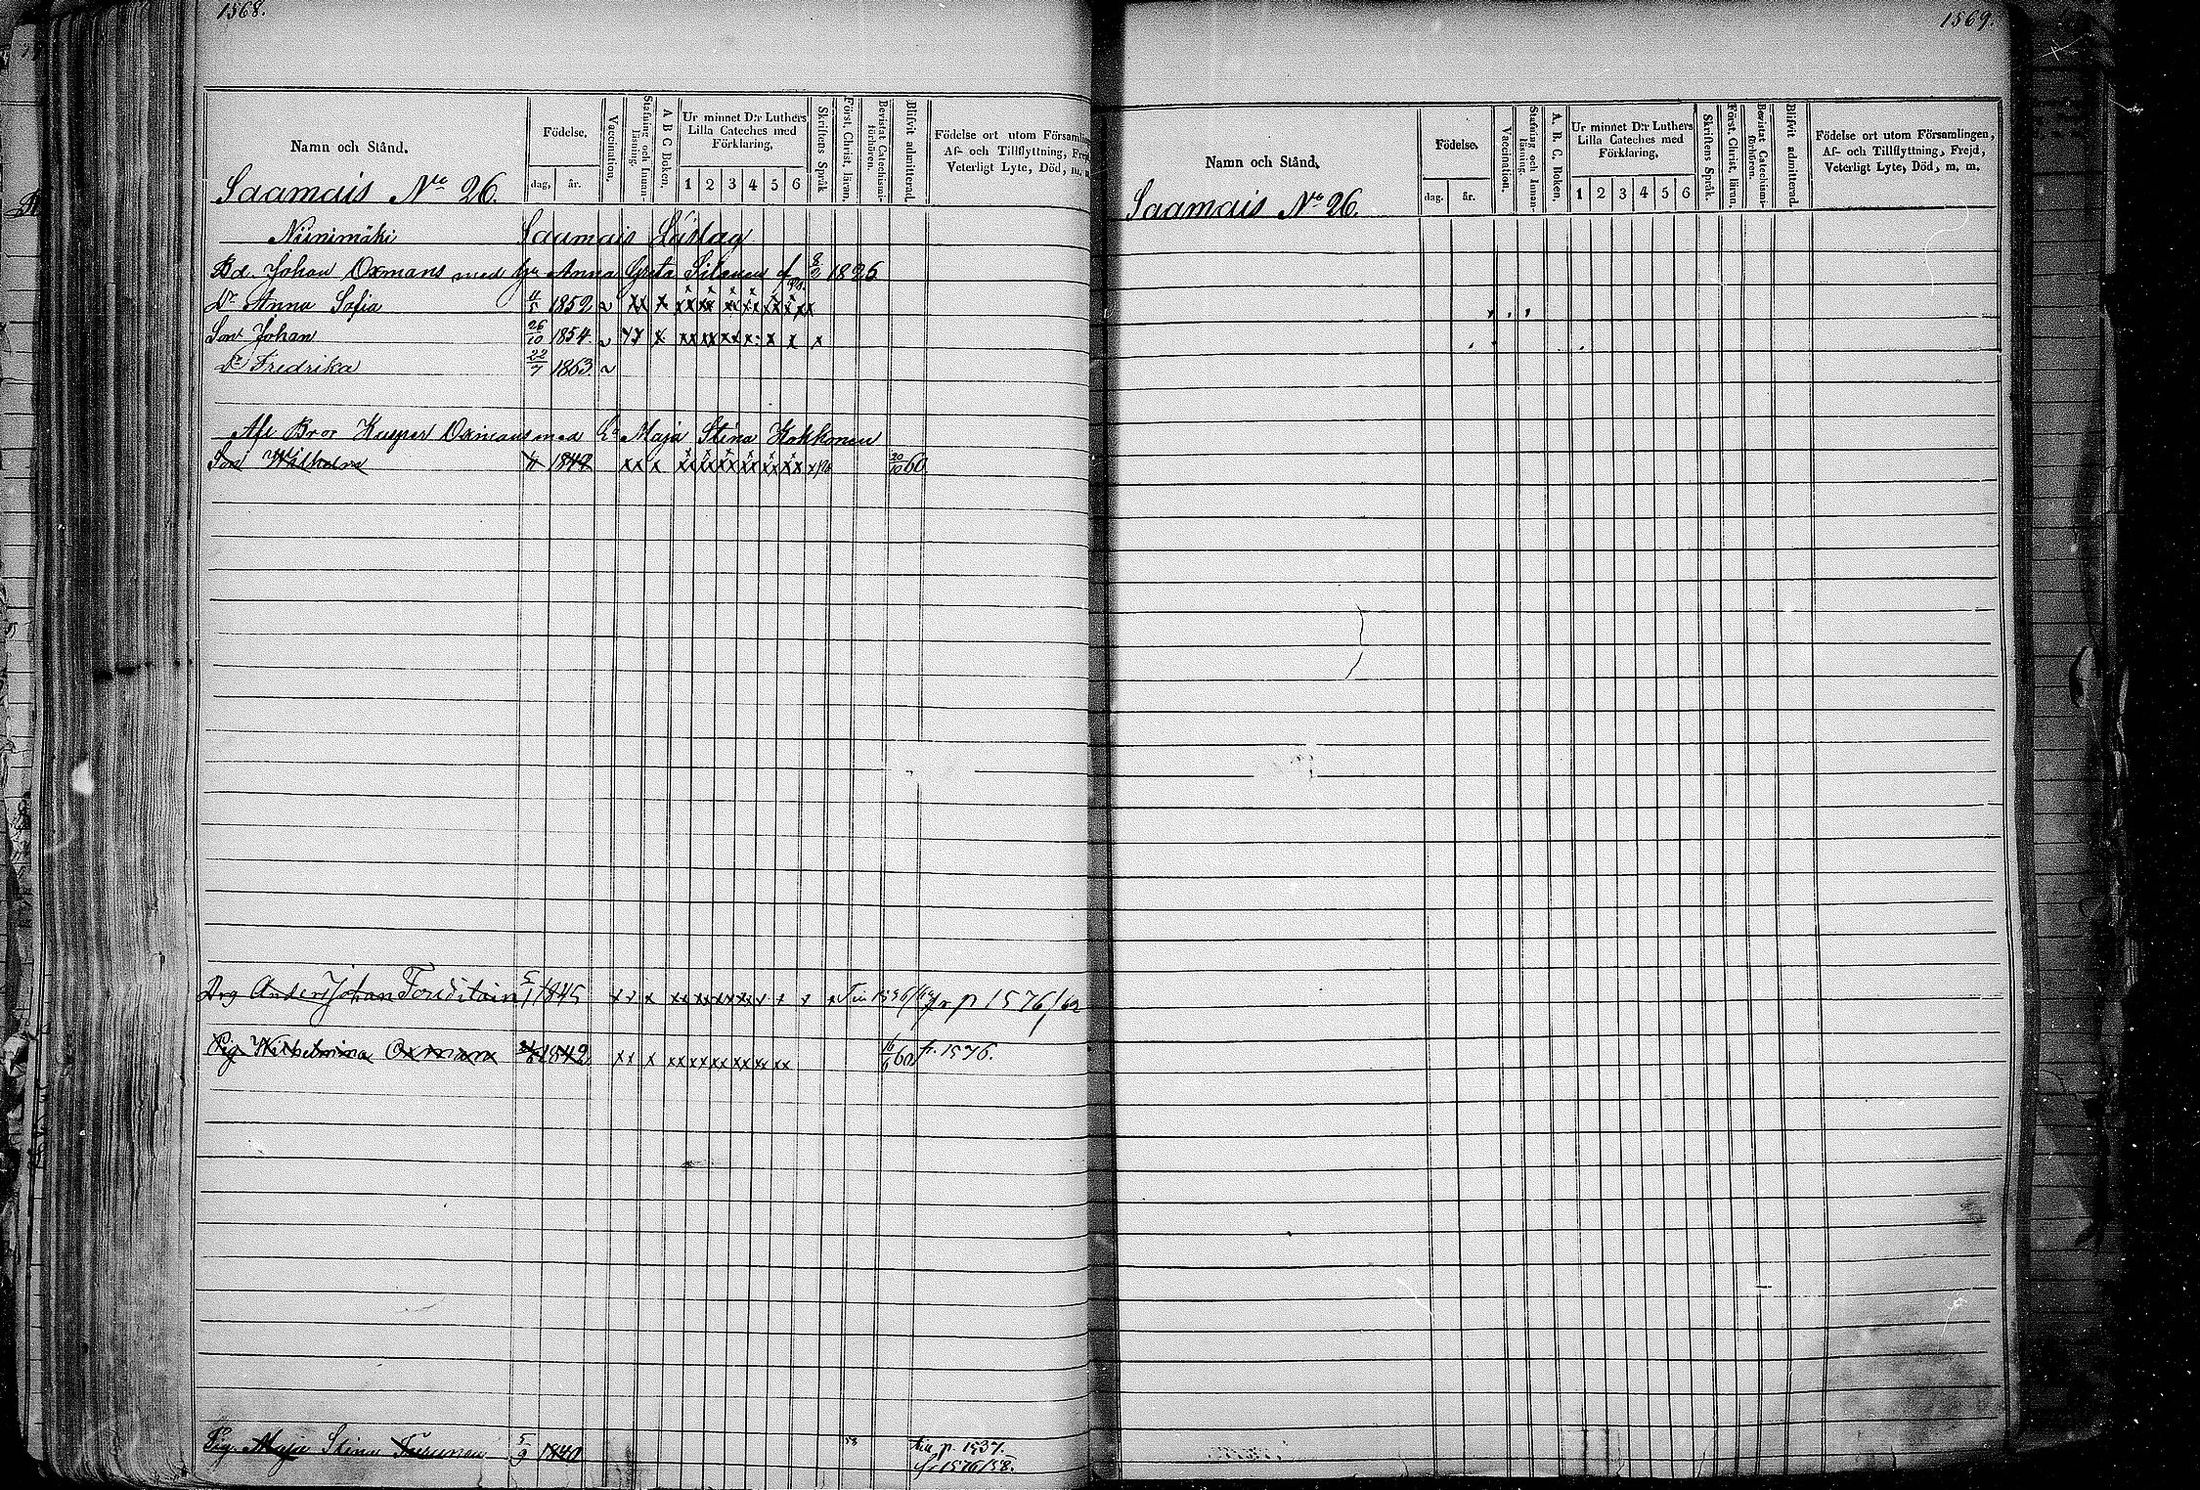 1568.
Namn och Stånd.
Födelse.
dag, år.
Vaccination,
Stafning och Innan-läsning.
A B C Boken,
Ur minnet D:r Luthers Lilla Cateches med Förklaring,
1 2 3 4 5 6
Skriftens Språk
Först. Christ. läran,
Bevistat Catechismi-förhören.
Blifvit admitterad.
Födelse ort utom Församlin
Af- och Tillflyttning, Frejd
Veterligt Lyte, Död, m. m.
Saamais No 26.
Niinimäki Saamais
Bd. Johan Oxmans med Anna Greta f. 8/2 1826
Dr Anna Sofia 1852
Son Johan 26/10 1854
Dr Fredrika 22/7 1863
Afl Bror Kasper Oxmans med Maja Stina Kokkonen
Son Wilhelm 1842 60
Drg Anders Johan 5/1 1845 fr p 1576/62
Pig. Wilhelmina Oxman 1842 16/6 60 fr. 1576.
Pig. Maja Stina Turunen 5/9 1840 58 till p. 1537.
fr 1576/58.
1569.
Namn och Stånd,
Födelse.
dag. år.
Vaccination.
Stafning och Innan-läsning.
A. B. C. Boken,
Ur minnet D:r Luthers Lilla Cateches med Förklaring,
1 2 3 4 5 6
Skriftens Språk.
Först. Christ. läran.
Bevistat Catechismi-förhören.
Blifvit admitterad.
Födelse ort utom Församlingen,
Af- och Tillflyttning, Frejd,
Veterligt Lyte, Död, m. m.
Saamais No 26.